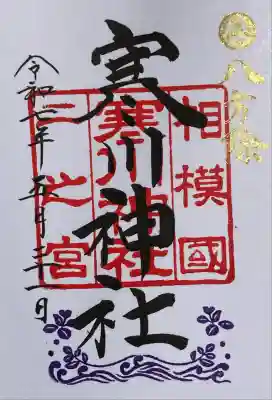 八方除
相模國
寒川神社
寒川神社
一之宮
令和七年五月三十一日